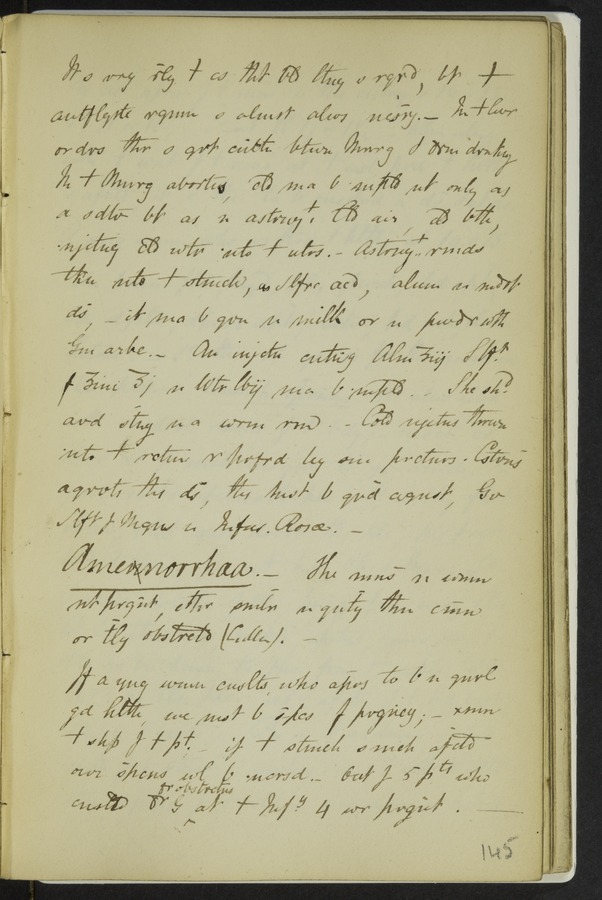 It s vry rly † as tht bld ltng s rqrd, bt †
antflgstc rgmn s almst alws nssry. — In † hvr
or dvs thr s grt
In † Mnrg abortus, cld ma b mpld nt only as
a sdtv bt as n astrng^t. Cld air, cld bth,
njctng cld wtr nto † utrs. — Astrng^t rmds
thn nto † stmch, as Slfrc acd, alum n
ds, — it ma b gvn n milk or n pwdr wth
Gm arbc. — An injctn cntng Alm ʒiij Slf^t
f Zinc ʒj n Wtr lbij ma b mpld. She sh^d
avd stng n a wrm rm. — Cold njctns thrwn
nto † rctm r prfrd by sm prctnrs. Cstvns
agrvts ths ds, ths mst b grd agnst, Gv
Slft f Mgns n Infus. Rosæ. —
Amennorrhaa. — The mns n wmn
nt prgnt, ethr smlr n qnty thn cmn
or tly obstrctd (Cullen). —
If a yng wmn cnslts, who aprs to b n gnrl
gd hlth, we mst b spcs f prgncy; — xmn
† shp f † pt. — if † stmch s mch afctd
our spcns wl b ncrsd. — Out f 5 pts who
cnsltd Dr G for obstrctns at † Inf^y 4 wr prgnt. —
145